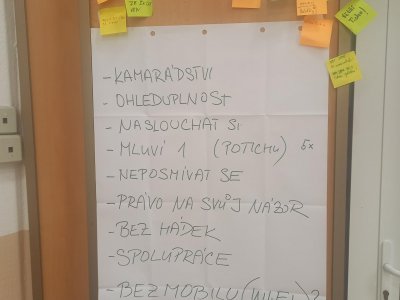 - KAMARÁDSTVÍ
- OHLEDUPLNOST
- NASLOUCHAT SI
- MLUVÍ 1 (POTICHU) 5x
- NEPOSMÍVAT SE
- PRÁVO NA SVŮJ NÁZOR
- BEZ HÁDEK
- SPOLUPRÁCE
- BEZ MOBILU